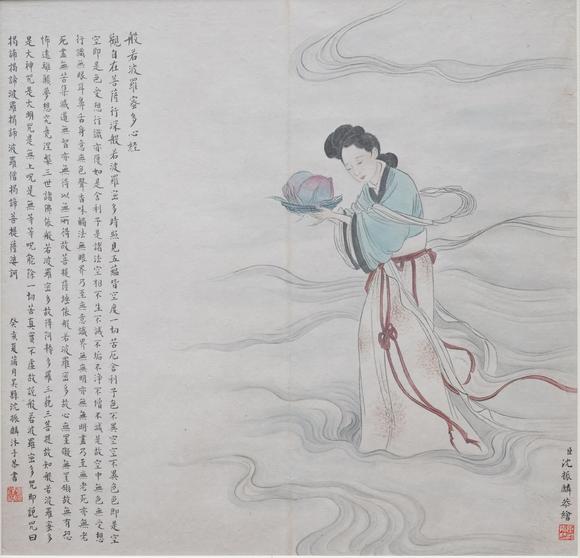 般若波羅蜜多心經
觀自在菩薩行深般若波羅蜜多時照見五蘊皆空度一切苦厄舍利子色不異空空不異色色即是空
空即是色受想行識亦復如是舍利子是諸法空相不生不滅不垢不淨不增不減是故空中無色無受想
行識無眼耳鼻舌身意無色聲香味觸法無眼界乃至無意識界無無明亦無無明盡乃至無老死亦無老
死盡無苦集滅道無智亦無得以無所得故菩提薩埵依般若波羅蜜多故心無罣礙無罣礙故無有恐
怖遠離顛夢想究竟涅槃三世諸佛依般若波羅蜜多故得阿耨多羅三藐三菩提故知般若波羅蜜多
是大神咒是大明咒是無上呪是無等等呪能除一切苦真實不虛故說般若波羅蜜多咒即說咒曰
揭諦揭諦波羅揭諦波羅僧揭諦菩提薩婆訶
癸亥夏蒲月吳縣沈振麟沐手恭書
臣沈振麟恭繪